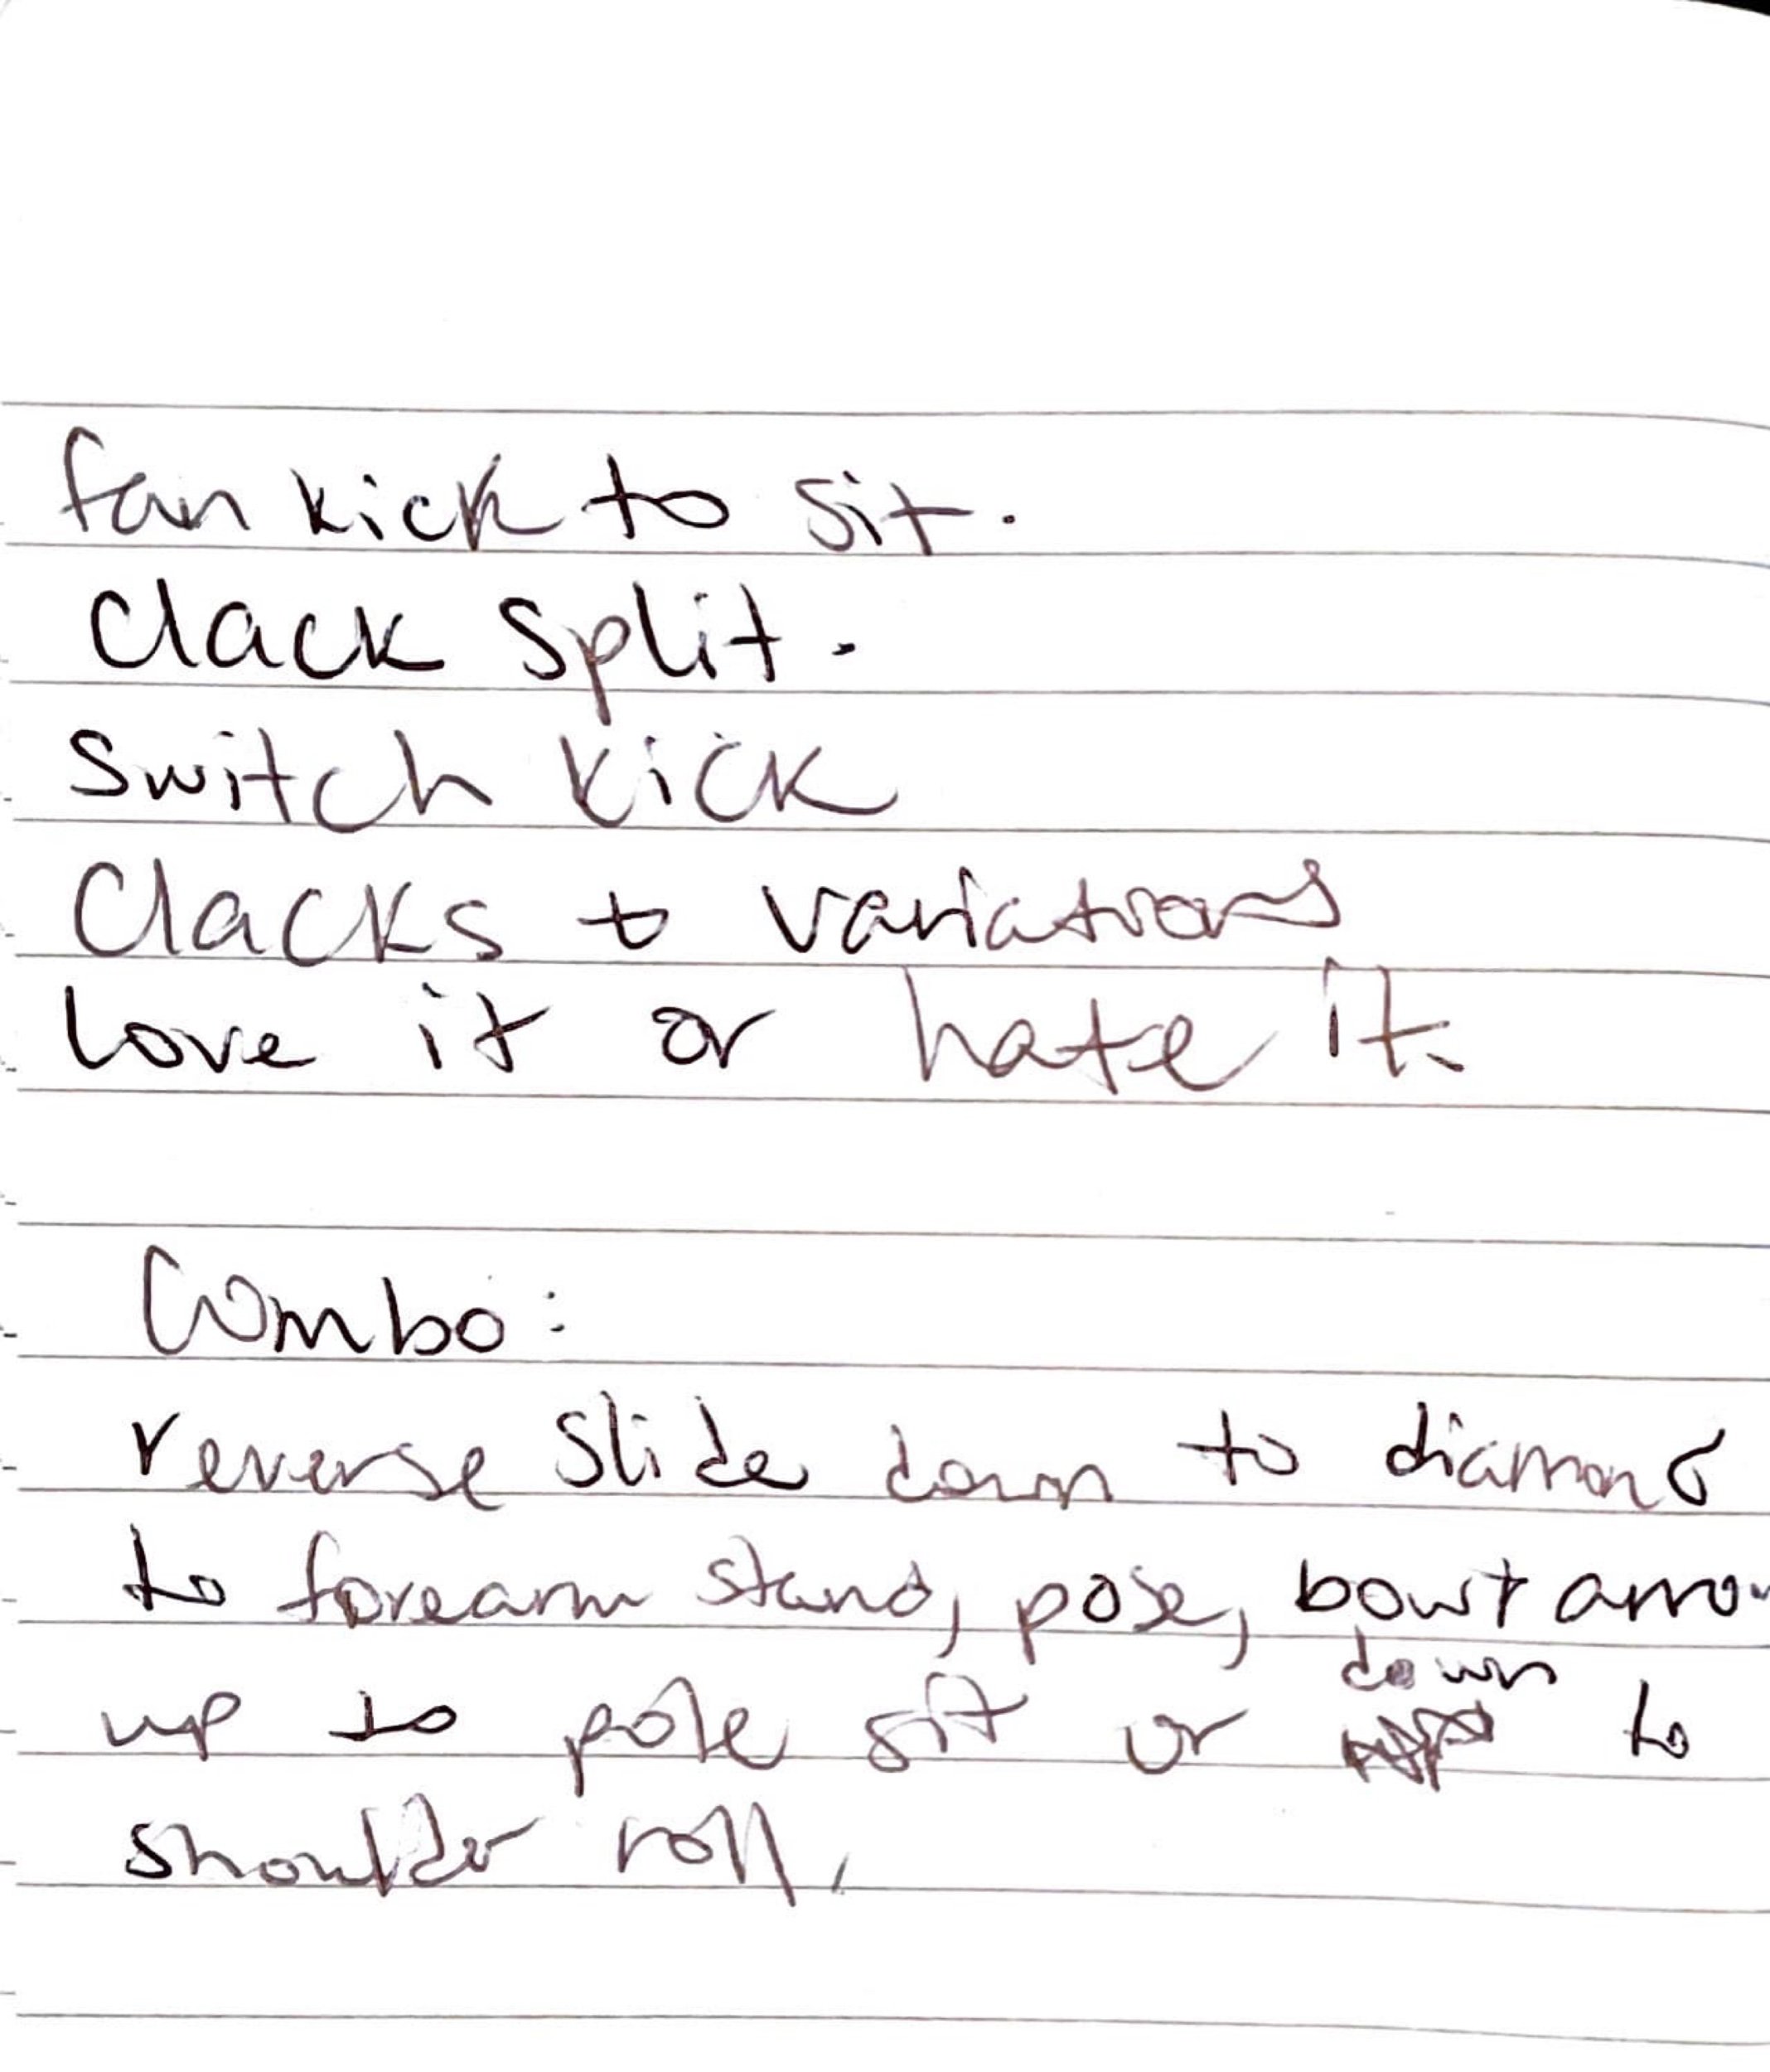 fan kick to sit.
Clack split.
Switch kick
Clacks + variations
love it or hate it.
Combo:
reverse slide down to diamond
to forearm stand, pose, bow + arro
up to pole sit or down to
shoulder roll.